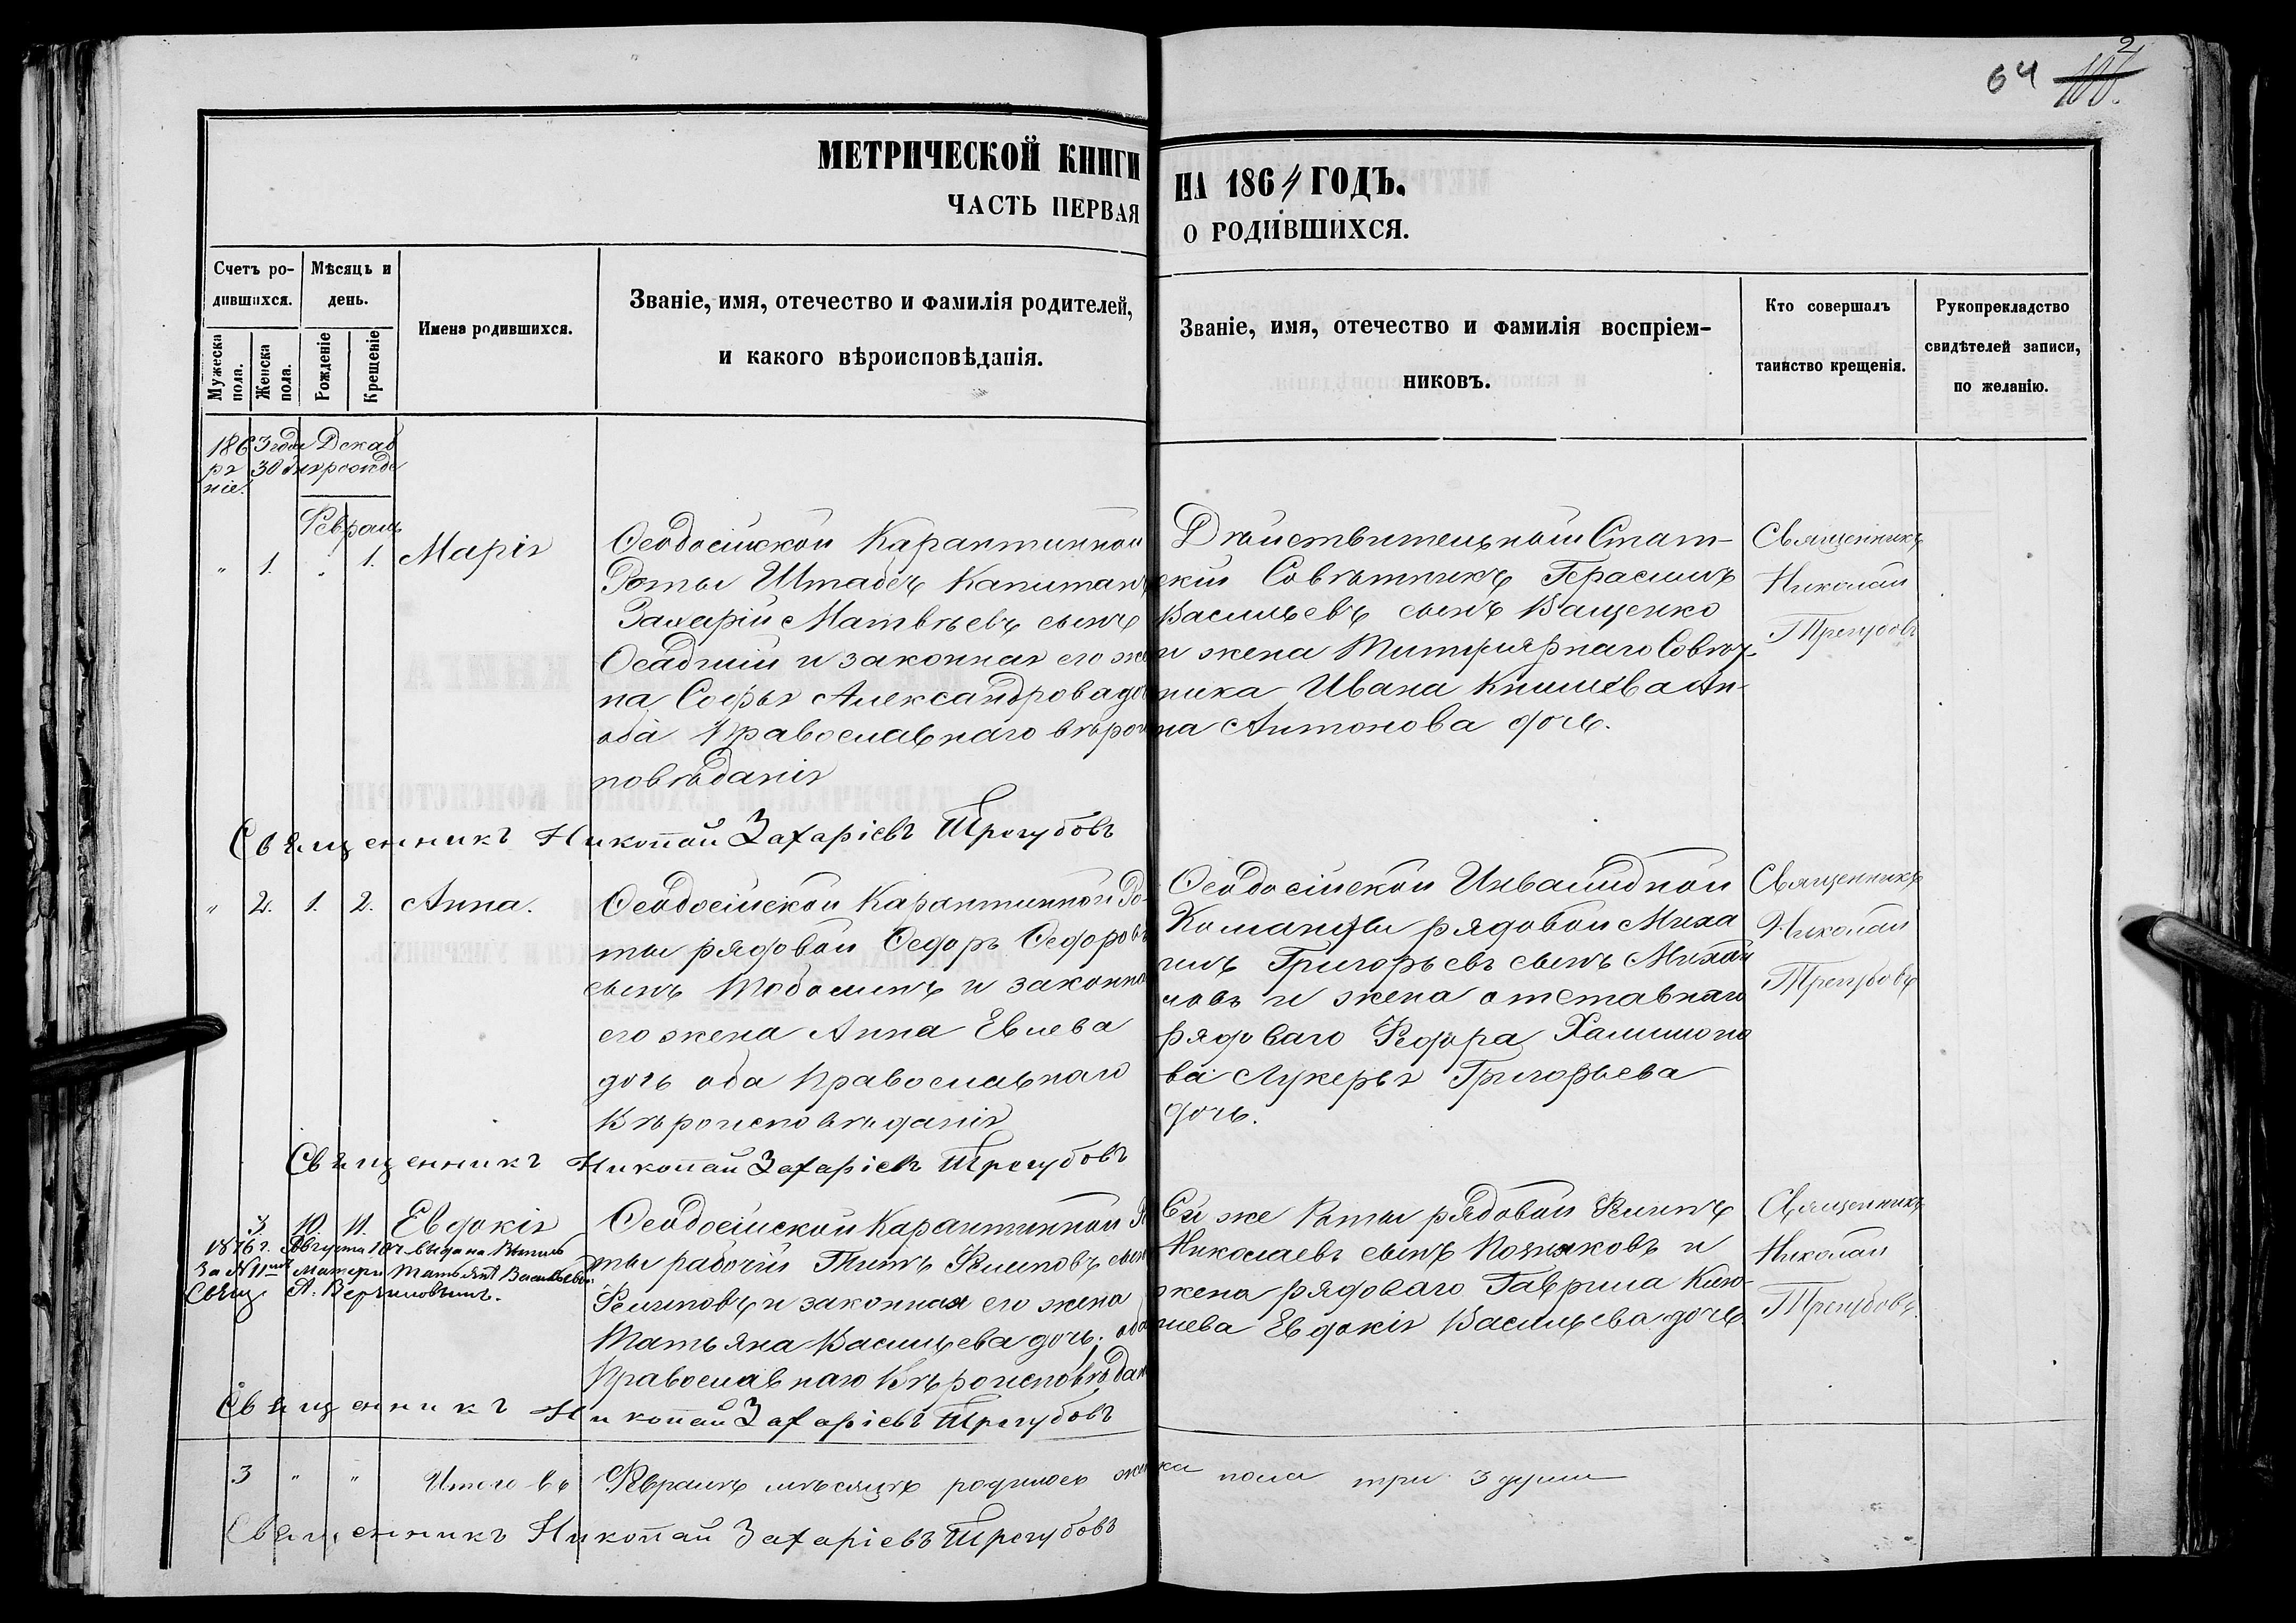 64 106.
2
МЕТРИЧЕСКОЙ КНИГИ НА 1864 ГОДЪ.
ЧАСТЬ ПЕРВАЯ О РОДИВШИХСЯ.
Счетъ родившихся.
Мужеска пола.
Женска пола.
Мѣсяцъ и день.
Рожденіе
Крещеніе
Имена родившихся.
Званіе, имя, отечество и фамилія родителей,
и какого вѣроисповѣданія.
Званіе, имя, отечество и фамилія воспріем-
никовъ.
Кто совершалъ
таинство крещенія.
Рукоприкладство
свидѣтелей записи,
по желанію.
1863 года Декаб
ря 30 дня рожде
ніе.
Февраль
" 1. " 1. Марія
Ѳеодосійской Карантинной
Роты Штабсъ Капитанъ
Захарій Матвѣевъ сынъ
Осадчій и законная его же
на Софья Александрова до
оба Православнаго вѣро
повѣданія
Дѣйствительный Стат-
скій Совѣтникъ Герасимъ
Васильевъ сынъ Ващенко
и жена Титулярнаго Совѣт-
ника Ивана Ан-
на Антонова дочь.
Священникъ
Николай
Трегубовъ
Священникъ Николай Захаріевъ Трегубовъ
" 2. 1. 2. Анна.
Ѳеодосійской Карантинной Ро-
ты рядовой Ѳедоръ Ѳедоровъ
сынъ и законна
его жена Анна Евлева
дочь оба Православнаго
Вѣроисповѣданія
Ѳеодосійской Инвалидной
Команды рядовой Миха
илъ Григорьевъ сынъ Михай
ловъ и жена отставнаго
рядоваго Федора
ва Лукерья Григорьева
дочь.
Священникъ
Николай
Трегубовъ
Священникъ Николай Захаріевъ Трегубовъ
3. 10. 11. Евдокія
1876 г. Августа 10 ч. выдана Выпись
за № 11 матери Татьянѣ Васильевой
Свящ. А.
Ѳеодосійской Карантинной Ро
ты рабочій Титъ Филиповъ сынъ
Филиповъ и законная его жена
Татьяна Васильева дочь, оба
Православнаго Вѣроисповѣдан
Сей же Роты рядовой Филипъ
Николаевъ сынъ Позняковъ и
жена рядоваго Гаврила
Евдокія Васильева дочь
Священникъ
Николай
Трегубовъ
Священникъ Николай Захаріевъ Трегубовъ
3 " " Итого въ Февралѣ мѣсяцѣ родилось женска пола три 3 души
Священникъ Николай Захаріевъ Трегубовъ